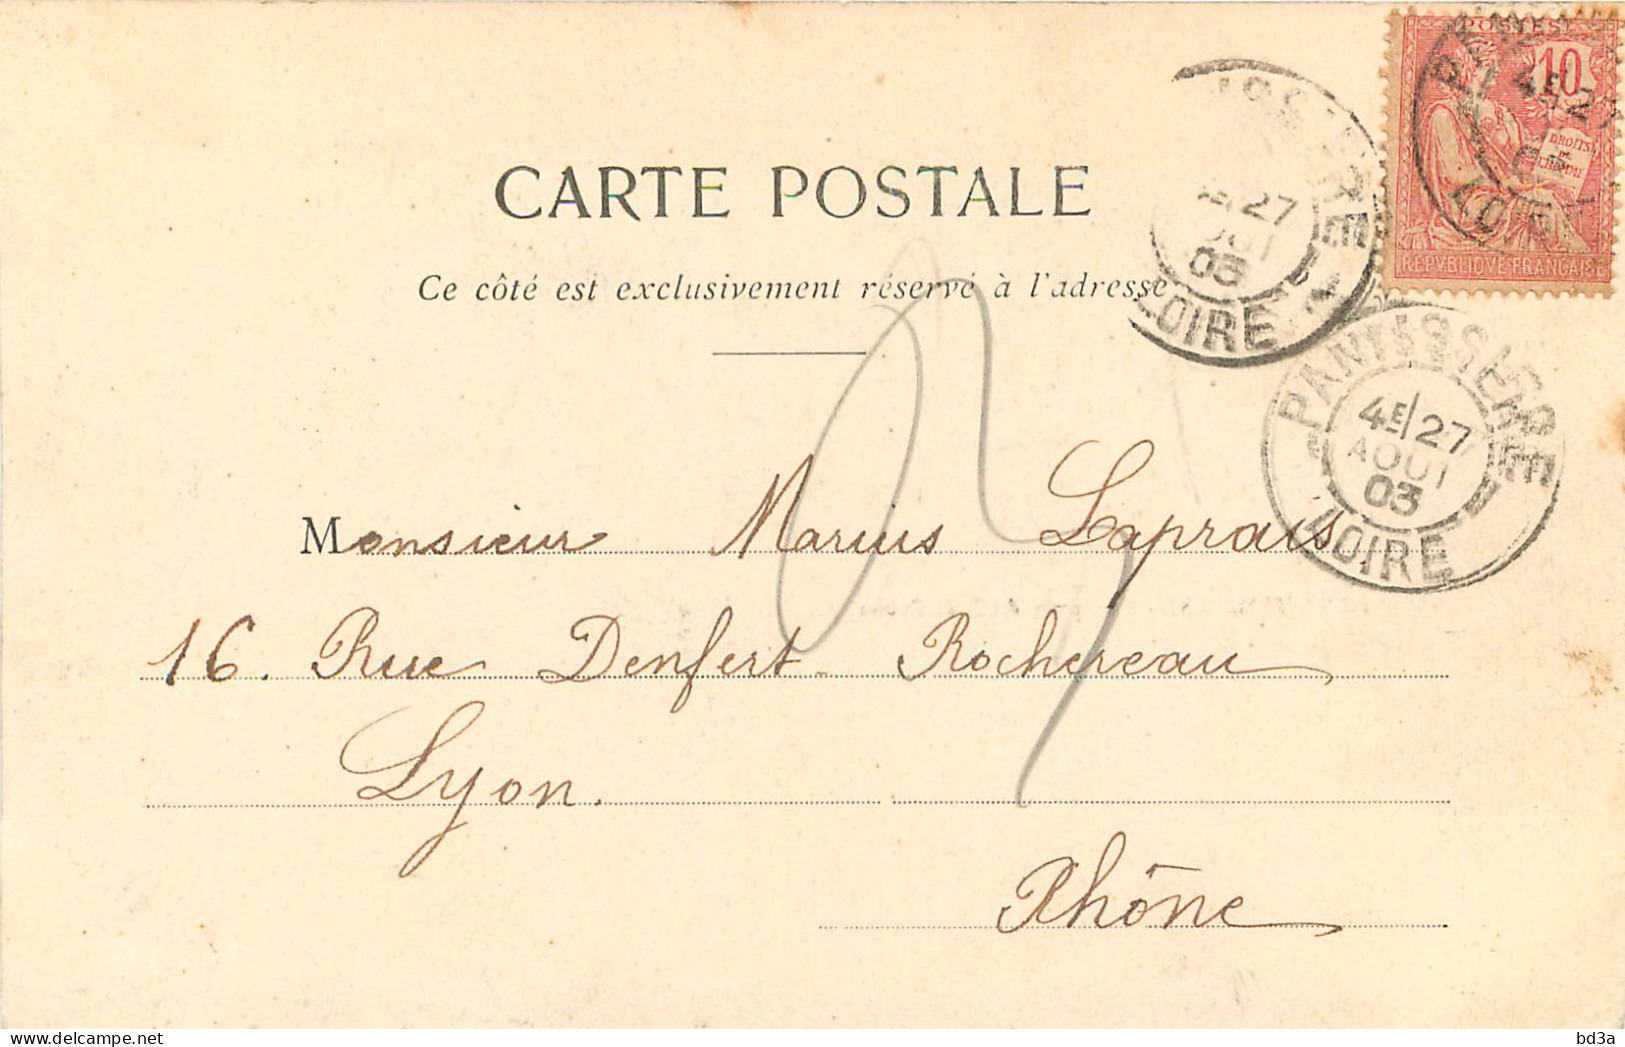 POSTES
10
DROITS
DE
L'HOMME
REPVBLIQVE FRANÇAISE
CARTE POSTALE
Ce côté est exclusivement réservé à l'adresse
27
03
LOIRE
PANISSIERES
4E 27
AOUT
03
LOIRE
Monsieur Marius Laprais
16. Rue Denfert-Rochereau
Lyon.
Rhône
bd3a